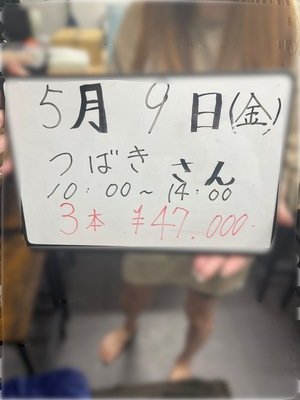 5月 9日(金)
つばき さん
10:00~14:00
3本 ¥47.000